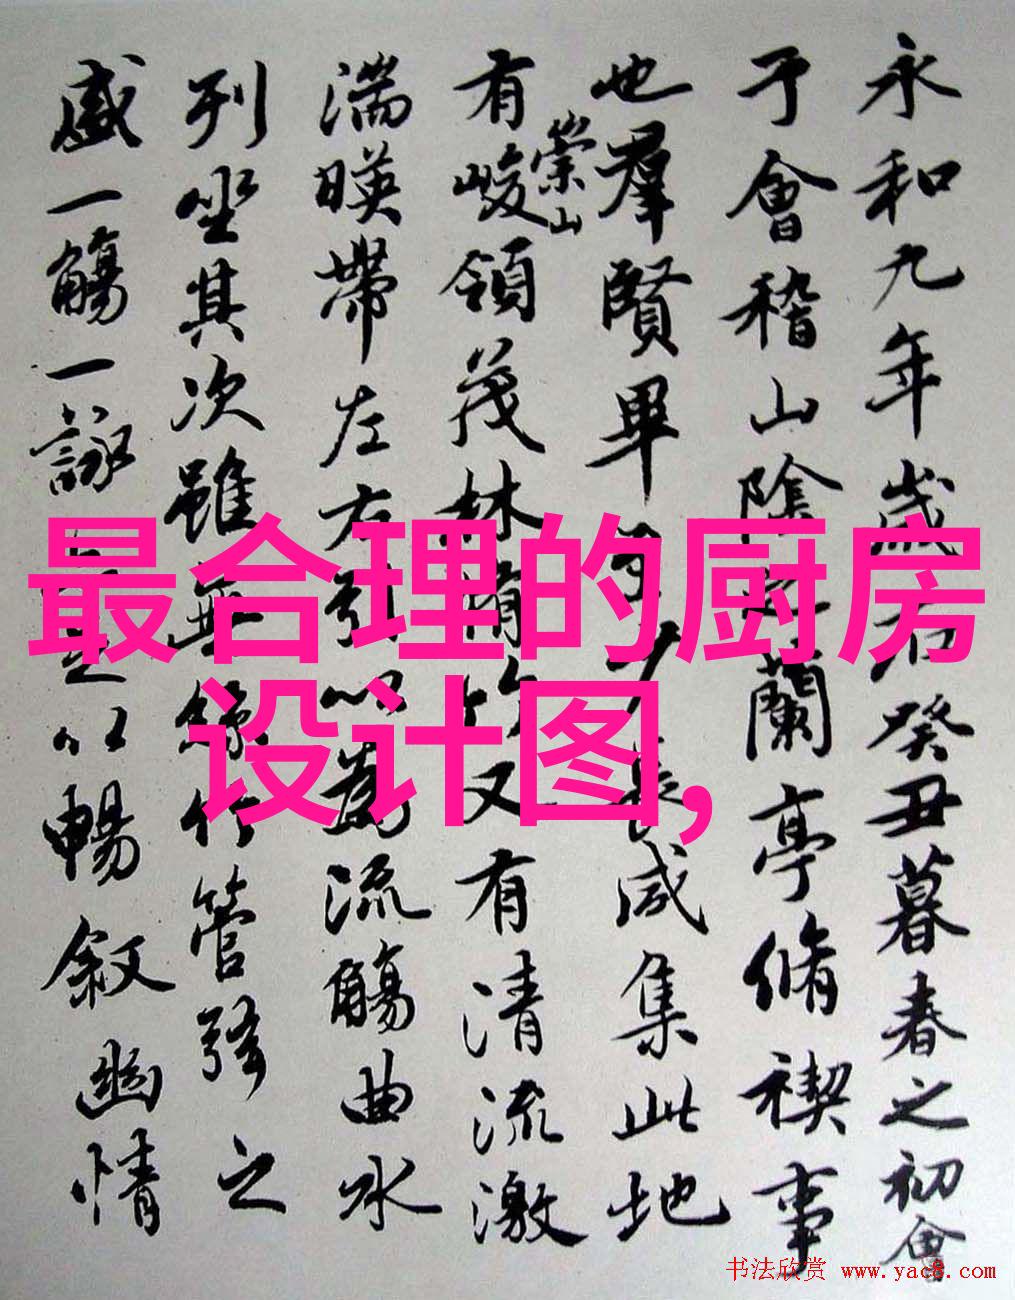 永和九年歲在癸丑暮春之初會
于會稽山陰之蘭亭脩禊事
也羣賢畢至少長咸集此地
有崇山峻領茂林脩竹又有清流激
湍暎帶左右引以為流觴曲水
列坐其次雖無絲竹管弦之
盛一觴一詠足以暢敘幽情
最合理的厨房
设计图,
书法欣赏 www.yac8.com